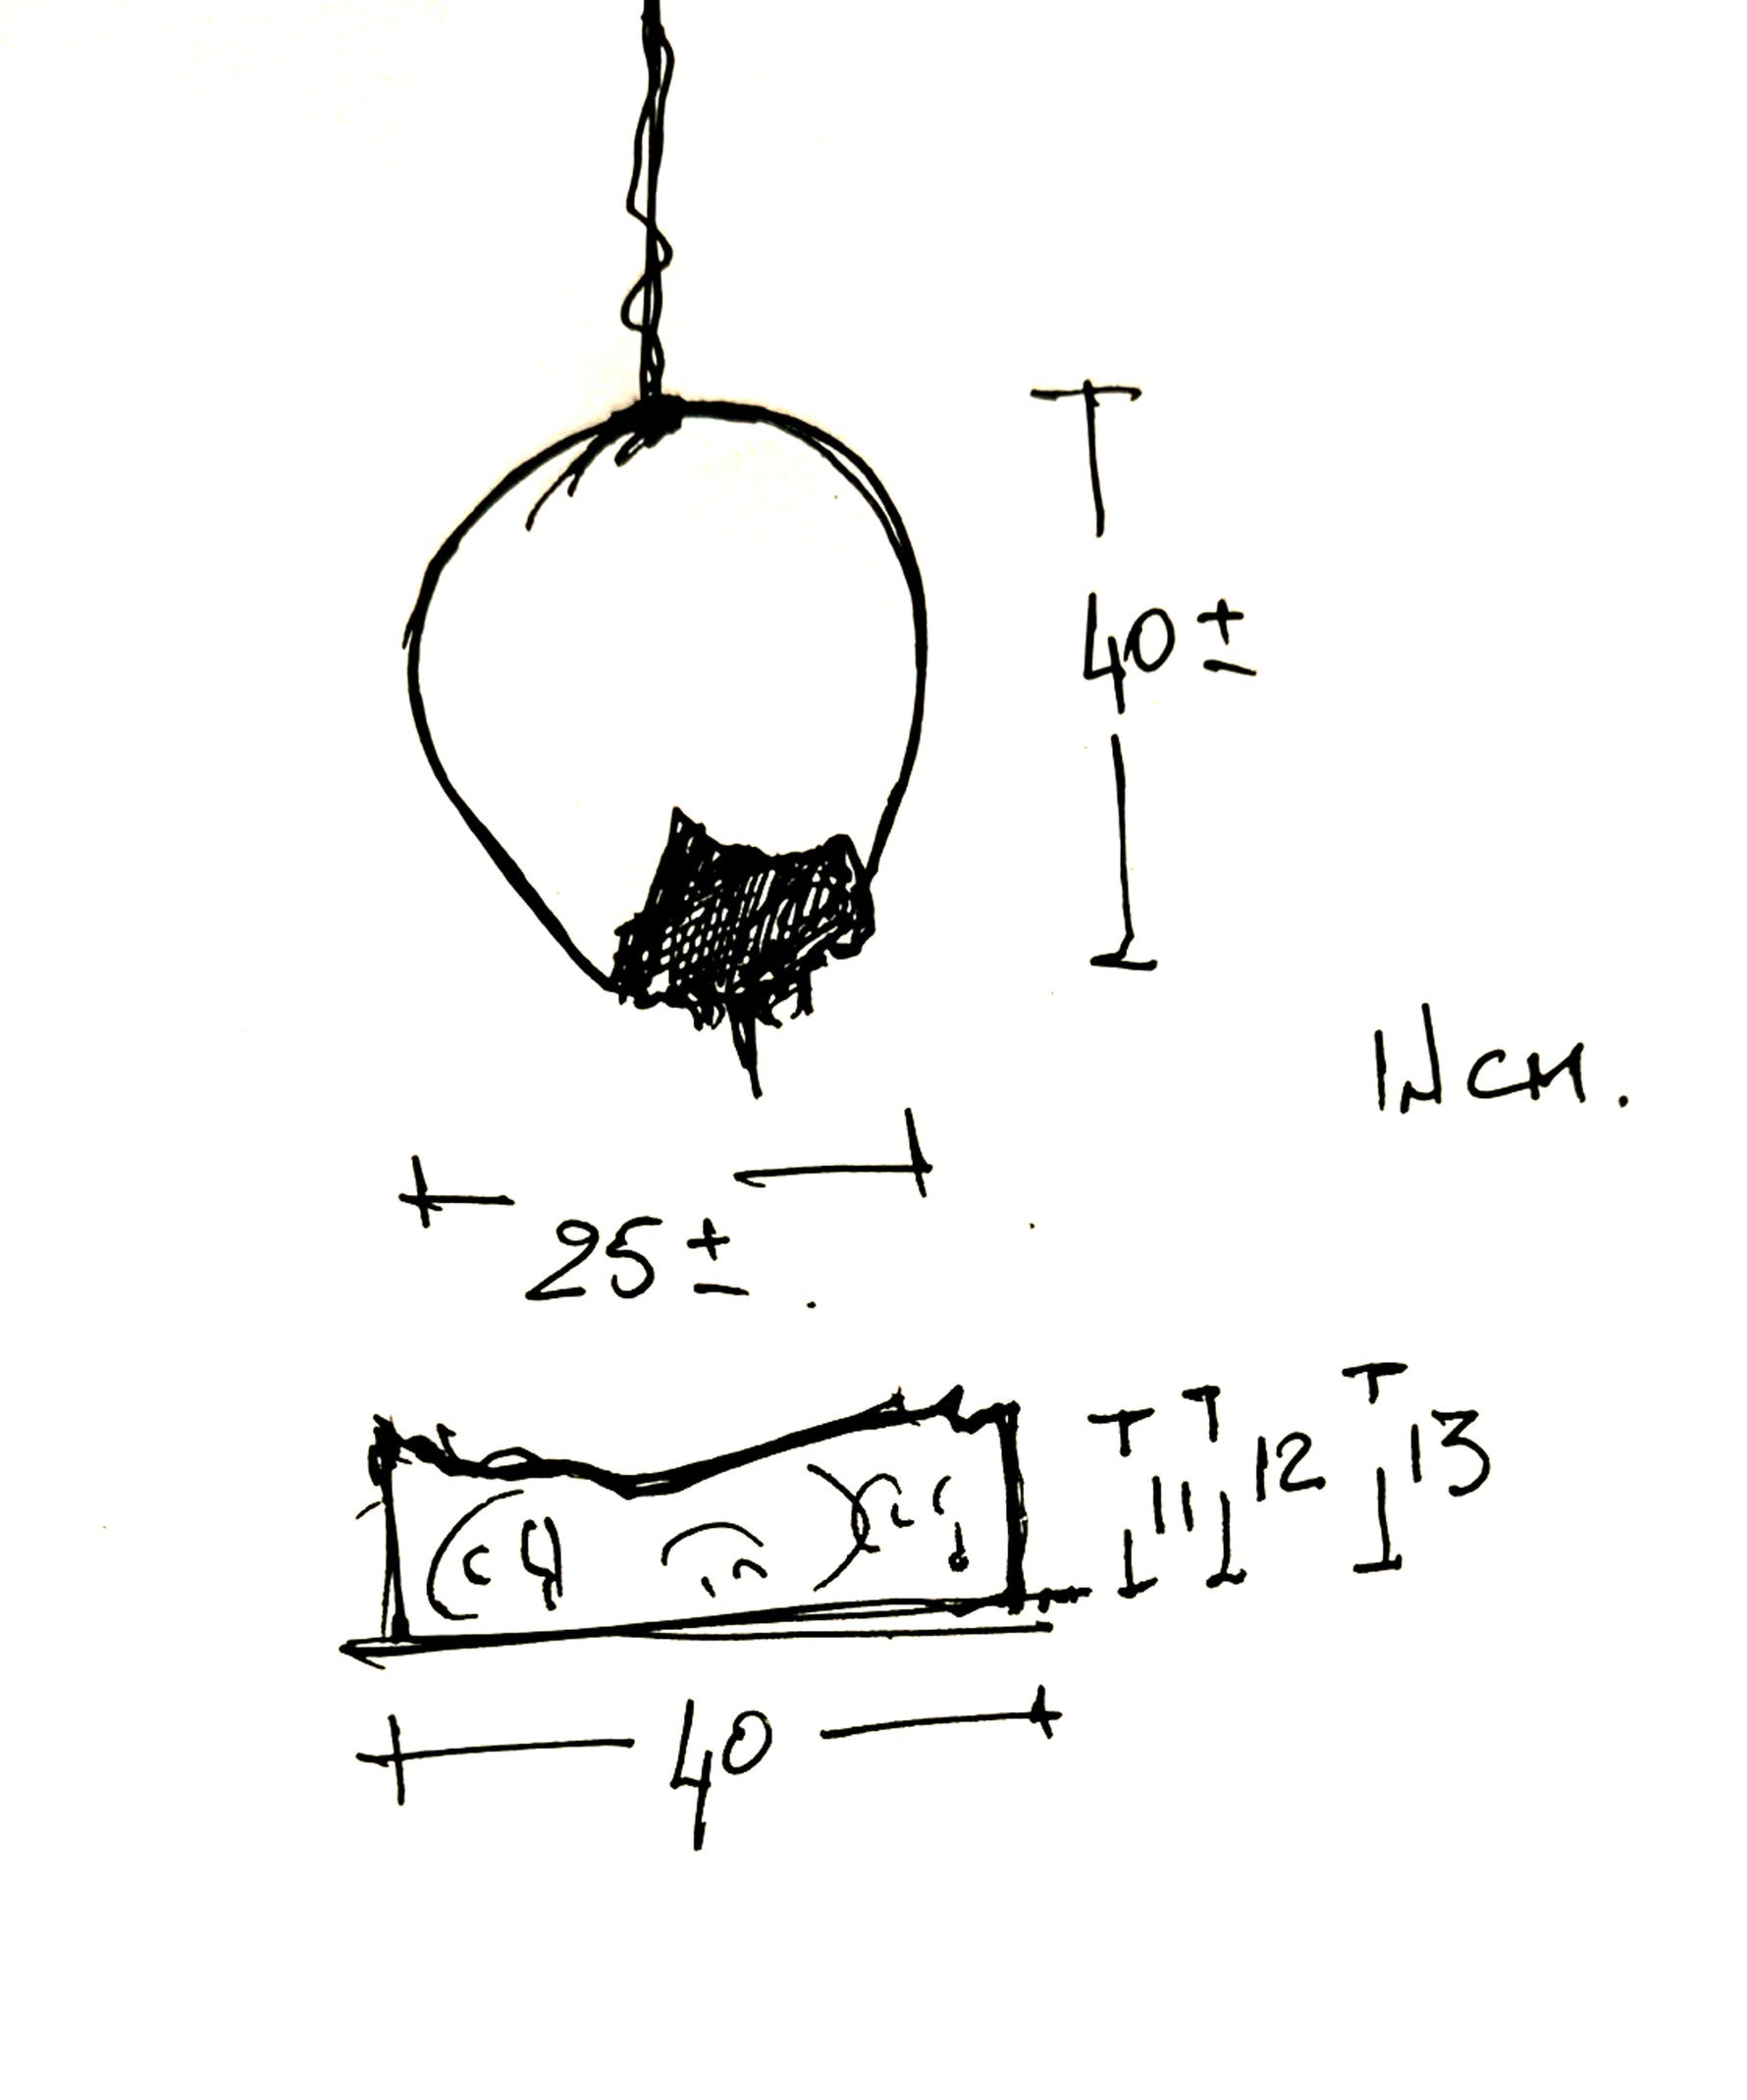 40±
см.
25±
11 12 13
40